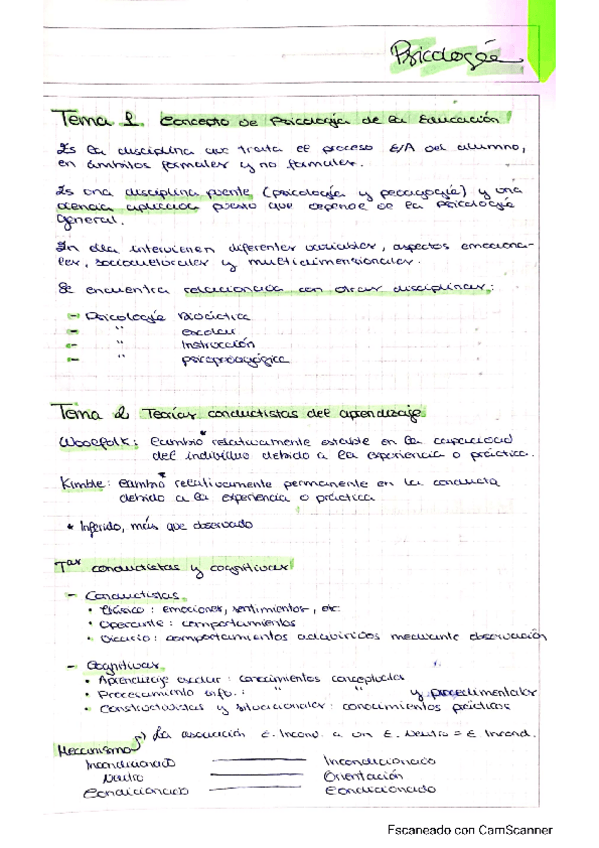 Psicología
Tema 1. Concepto de Psicología de la Educación
Es la disciplina que trata el proceso E/A del alumno,
en ámbitos formales y no formales.
Es una disciplina puente (psicología y pedagogía) y una
ciencia aplicada puesto que depende de la psicología
general.
En ella intervienen diferentes variables, aspectos emociona-
les, socioculturales y multidimensionales.
Se encuentra relacionada con otras disciplinas:
- Psicología Didáctica
- " escolar
- " Instrucción
- " psicopedagógica
Tema 2. Teorías conductistas del aprendizaje
Woolfolk: Cambio* relativamente estable en la capacidad
del individuo debido a la experiencia o práctica.
Kimble: Cambio* relativamente permanente en la conducta
debido a la experiencia o práctica
* Inferido, más que observado
Tas conductistas y cognitivas
- Conductistas
• Clásico: emociones, sentimientos, etc
• Operante: comportamientos
• Vicario: comportamientos adquiridos mediante observación
- Cognitivas
• Aprendizaje escolar: conocimientos conceptuales
• Procesamiento info.: " " y procedimentales
• Constructivistas y situacionales: conocimientos prácticos
La asociación E. Incond. a un E. Neutro = E Incond.
Mecanismo
Incondicionado Incondicionado
Neutro Orientación
Condicionado Condicionado
Escaneado con CamScanner